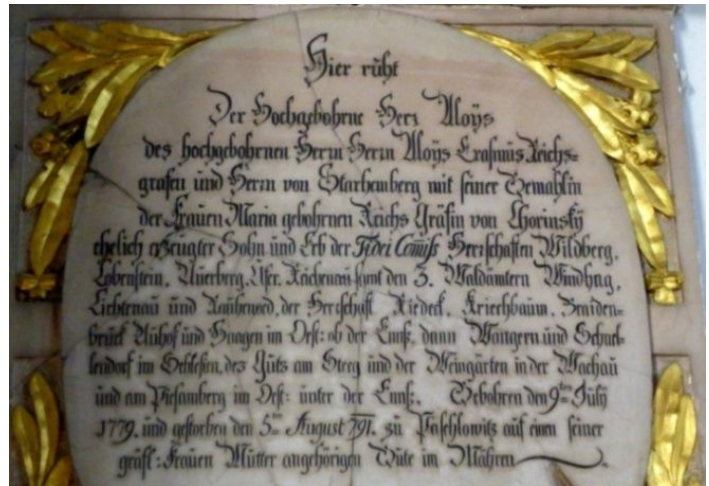 Hier ruht
Der Hochgebohrne Herr Aloÿs
des hochgebohrnen Herrn Herrn Aloÿs Erasmus Reichs-
grafen und Herrn von Starhemberg mit seiner Gemahlin
der Frauen Maria gebohrnen Reichs Gräfin von Chorinskÿ
ehelich erzeugter Sohn und Erb der Fidei Com̅iß Herrschaften Wildberg,
Lobenstein, Auerberg, Reichenau samt den 3. Waldämtern Windhag,
Lichtenau und Rauhenöd, der Herrschaft Riedeck, Kriechbaum, Breiden-
bruck Auhof und Haagen im Oest: ob der Ennß, dann Wangern und Schnel-
lendorf im Schlesien, des Guts am Steeg und der Weingärten in der Wachau
und am Bisamberg im Oest: unter der Ennß. Gebohren den 9ten July
1779. und gestorben den 5ten August 791. zu Paschlowitz auf einen seiner
gräfl: Frauen Mutter angehörigen Güte im Mähren